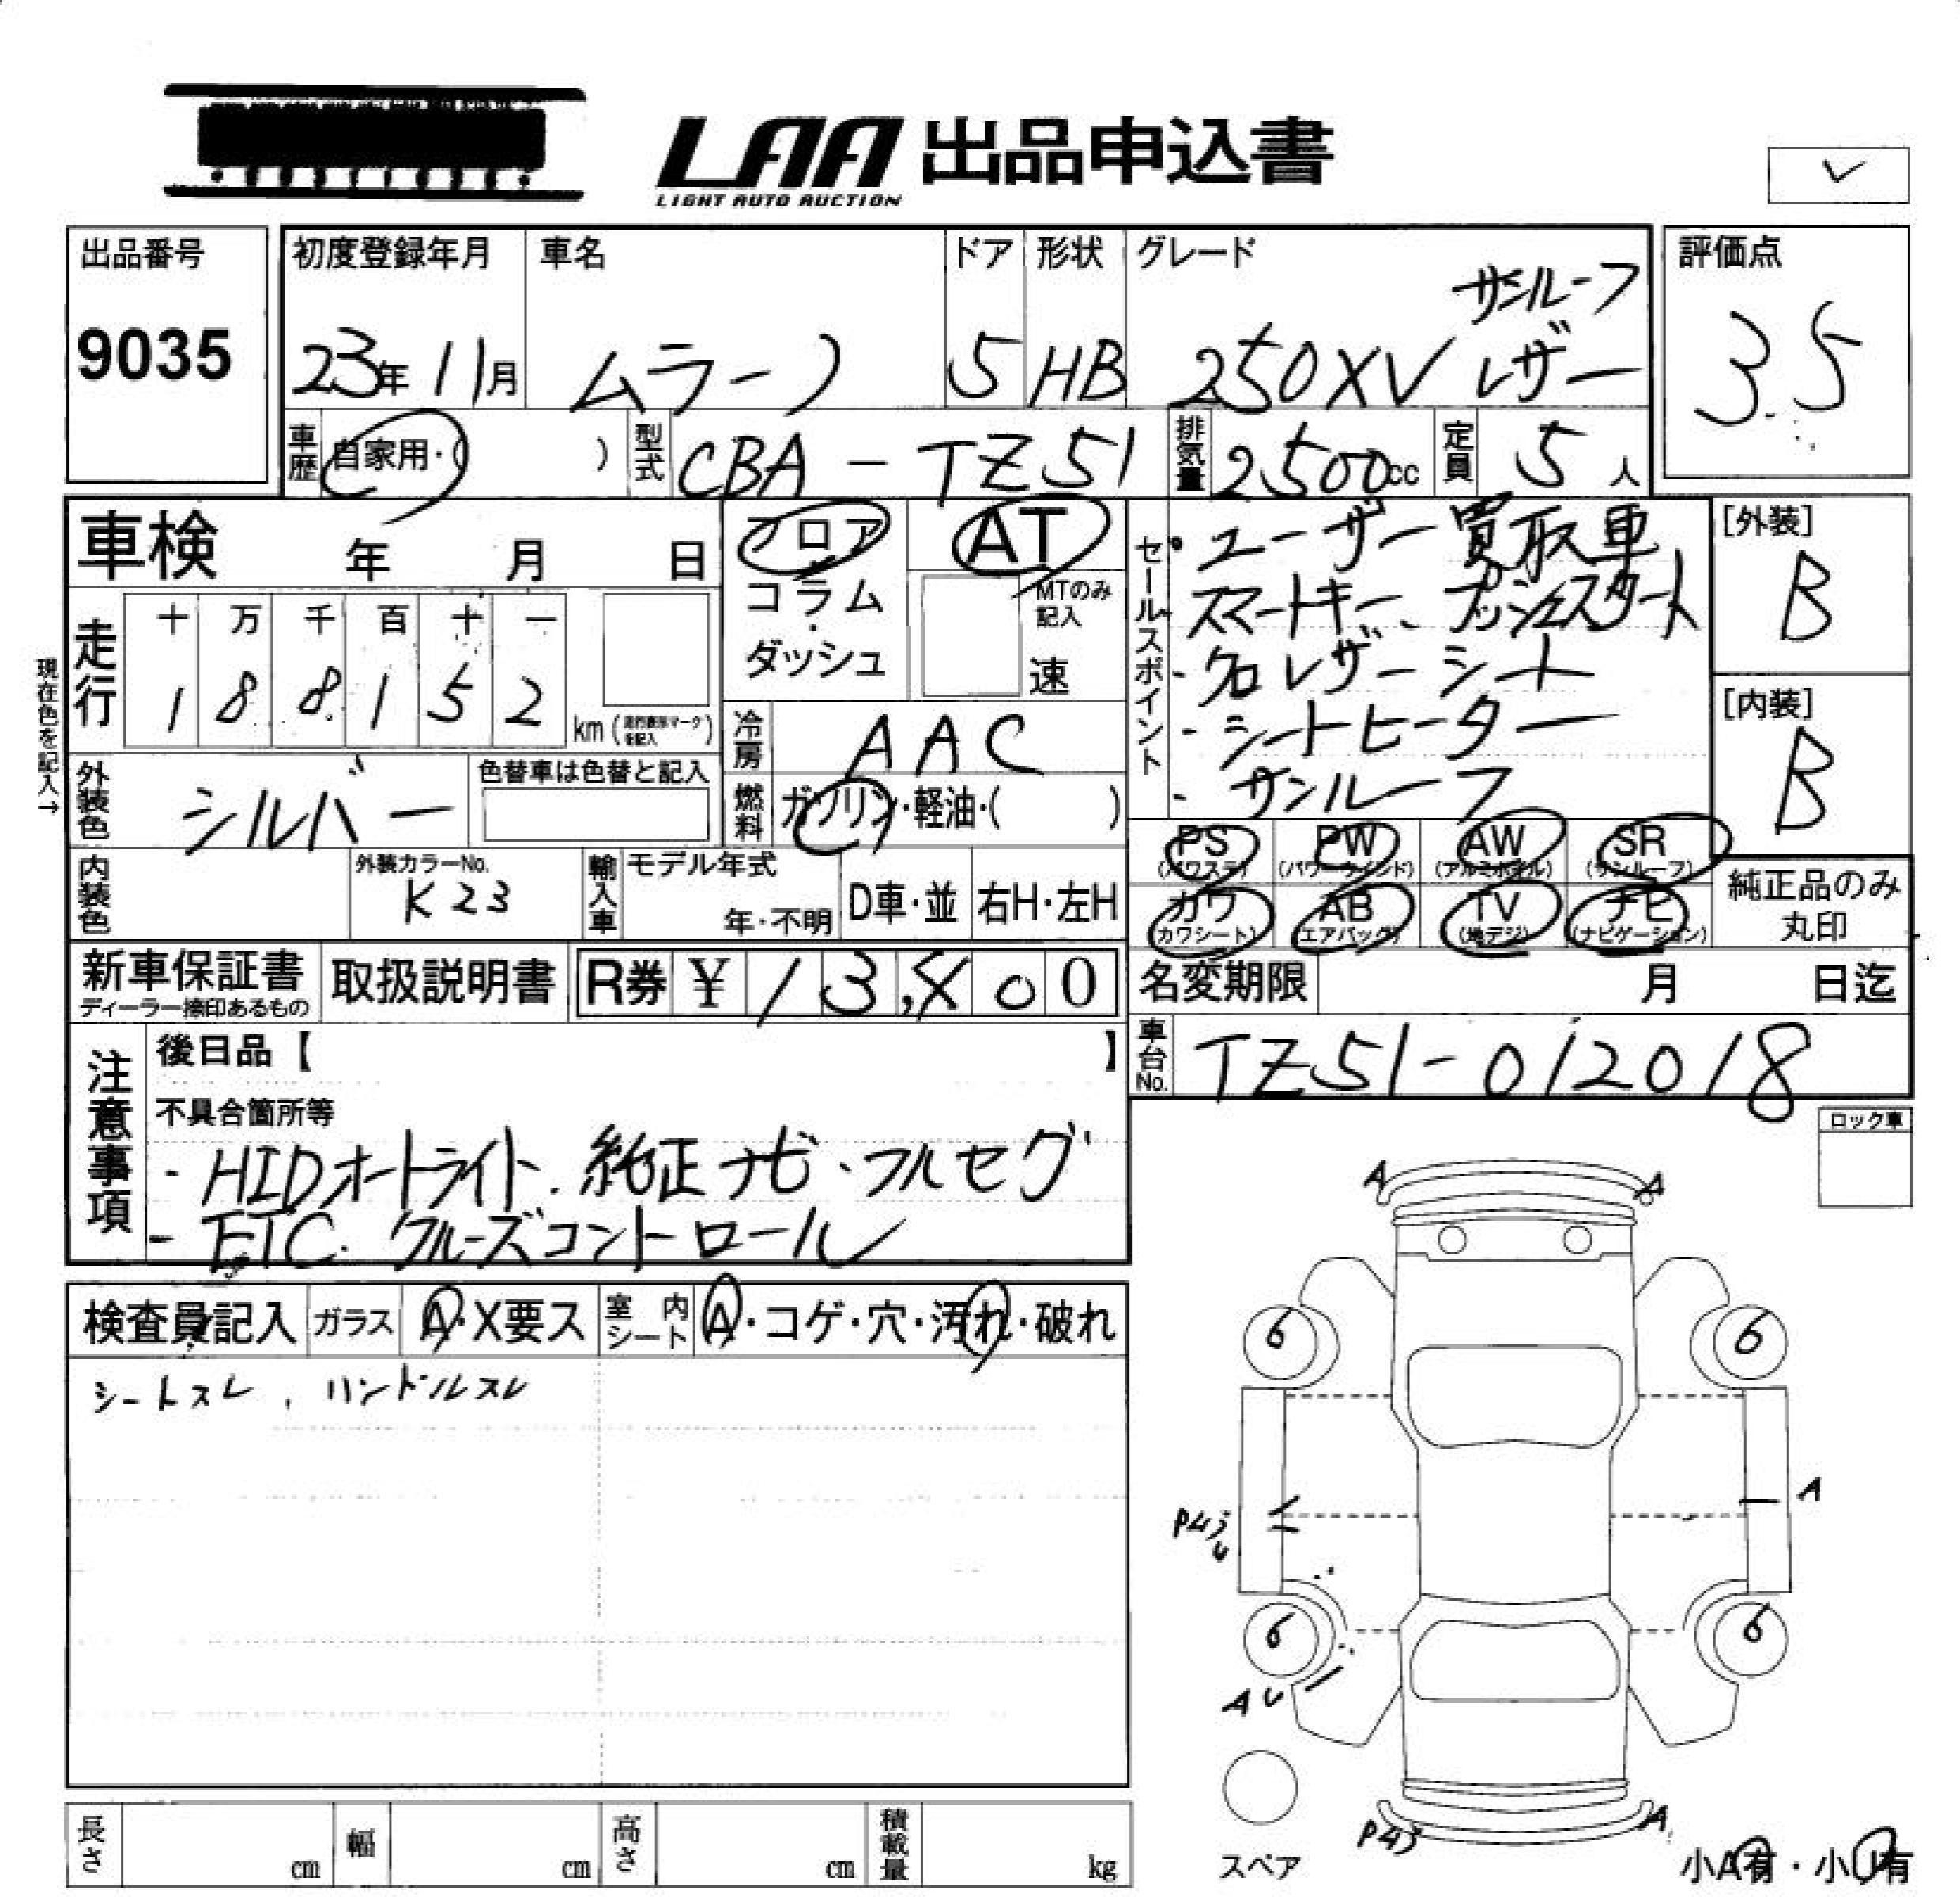 LAA 出品申込書
LIGHT AUTO AUCTION
出品番号
9035
初度登録年月
23年11月
車名
ムラーノ
ドア
5
形状
HB
グレード
サンルーフ
250XV レザー
評価点
3.5
車歴
自家用・( )
型式
CBA-TZ51
排気量
2500cc
定員
5人
車検 年 月 日
フロア
コラム
・
ダッシュ
AT
MTのみ
記入
速
セールスポイント
・ユーザー買取車
スマートキー、プッシュスタート
- 黒レザーシート
- シートヒーター
- サンルーフ
[外装]
B
[内装]
B
現在色を記入→
走行
十 万 千 百 十 一
1 8 8 1 5 2
km (走行表示マークを記入)
外装色
シルバー
色替車は色替と記入
冷房
AAC
燃料
ガソリン・軽油・( )
内装色
外装カラーNo.
K23
輸入車
モデル年式
年・不明
D車・並
右H・左H
PS
(パワステ)
PW
(パワーウインド)
AW
(アルミホイル)
SR
(サンルーフ)
カワ
(カワシート)
AB
(エアバック)
TV
(地デジ)
ナビ
(ナビゲーション)
純正品のみ
丸印
新車保証書
ディーラー捺印あるもの
取扱説明書
R券 ¥ 13,
00
名変期限 月 日迄
車台No.
TZ51-012018
注意事項
後日品【 】
不具合箇所等
- HIDオートライト、純正ナビ・フルセグ
- ETC. クルーズコントロール
ロック車
検査員記入
ガラス
A・X要ス
室内シート
A・コゲ・穴・汚れ・破れ
シートスレ、ハンドルスレ
A A
6 6
A
6 6
AU
A
スペア
小A有・小U有
長さ cm
幅 cm
高さ cm
積載量 kg